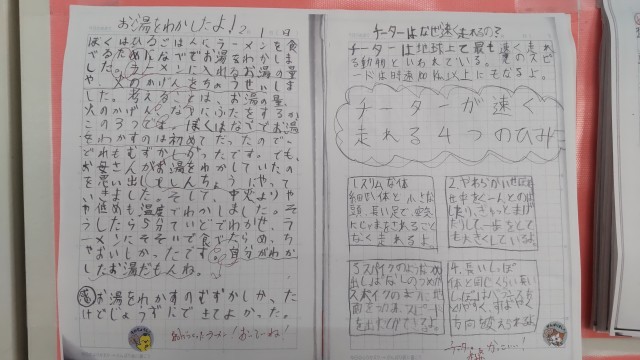 お湯をわかしたよ! 2 1日
ぼくはひるごはんにラーメンを食
べるためになべでお湯をわかしま
した。ラーメンに入れるお湯の量
や、火のかげんをちょうせいしま
した。考えることは、お湯の量、
火のかげん、なべにふたをするか
この3つです。ぼくはなべでお湯
をわかすのは初めてだったので、
どれもむずかしかったです。でも、
お母さんがお湯をわかしていたの
を思い出ししんちょうにやって
いきました。そして、中火より
や低めも温度でわかしました。そ
うしたら5分ていどでわかせ、ラ
ーメンにそそいで食べたら、めっち
ゃおいしかったです。自分がわか
したお湯だもんね。
お湯をわかすのむずかしかった
けどじょうずにできてよかった。
ラーメン!おいしいね!
チーターはなぜ速く走れるの?
チーターは地球上で最も速く走れ
る動物といわれている。そのスピ
ードは時速 以上にもなるよ。
チーターが速く
走れる4つのひみ
1.スリムな体
細い体と小さな
頭、長い足で、空気
にじゃまをされること
なく走れるよ。
2.やわらかいせぼね
背中をぐーんとのば
したり、ぎゅっとまげ
たりして一歩をとて
も大きくしているよ。
3.スパイクのようなつめ
出しっぱなしのつめが
スパイクのように地
面をつかみ、スピード
を出すことができるよ。
4.長いしっぽ
体と同じくらい長い
しっぽはバランスを
とりやすく、すばやく
方向を変えられるよ。
チーター かっこいい!